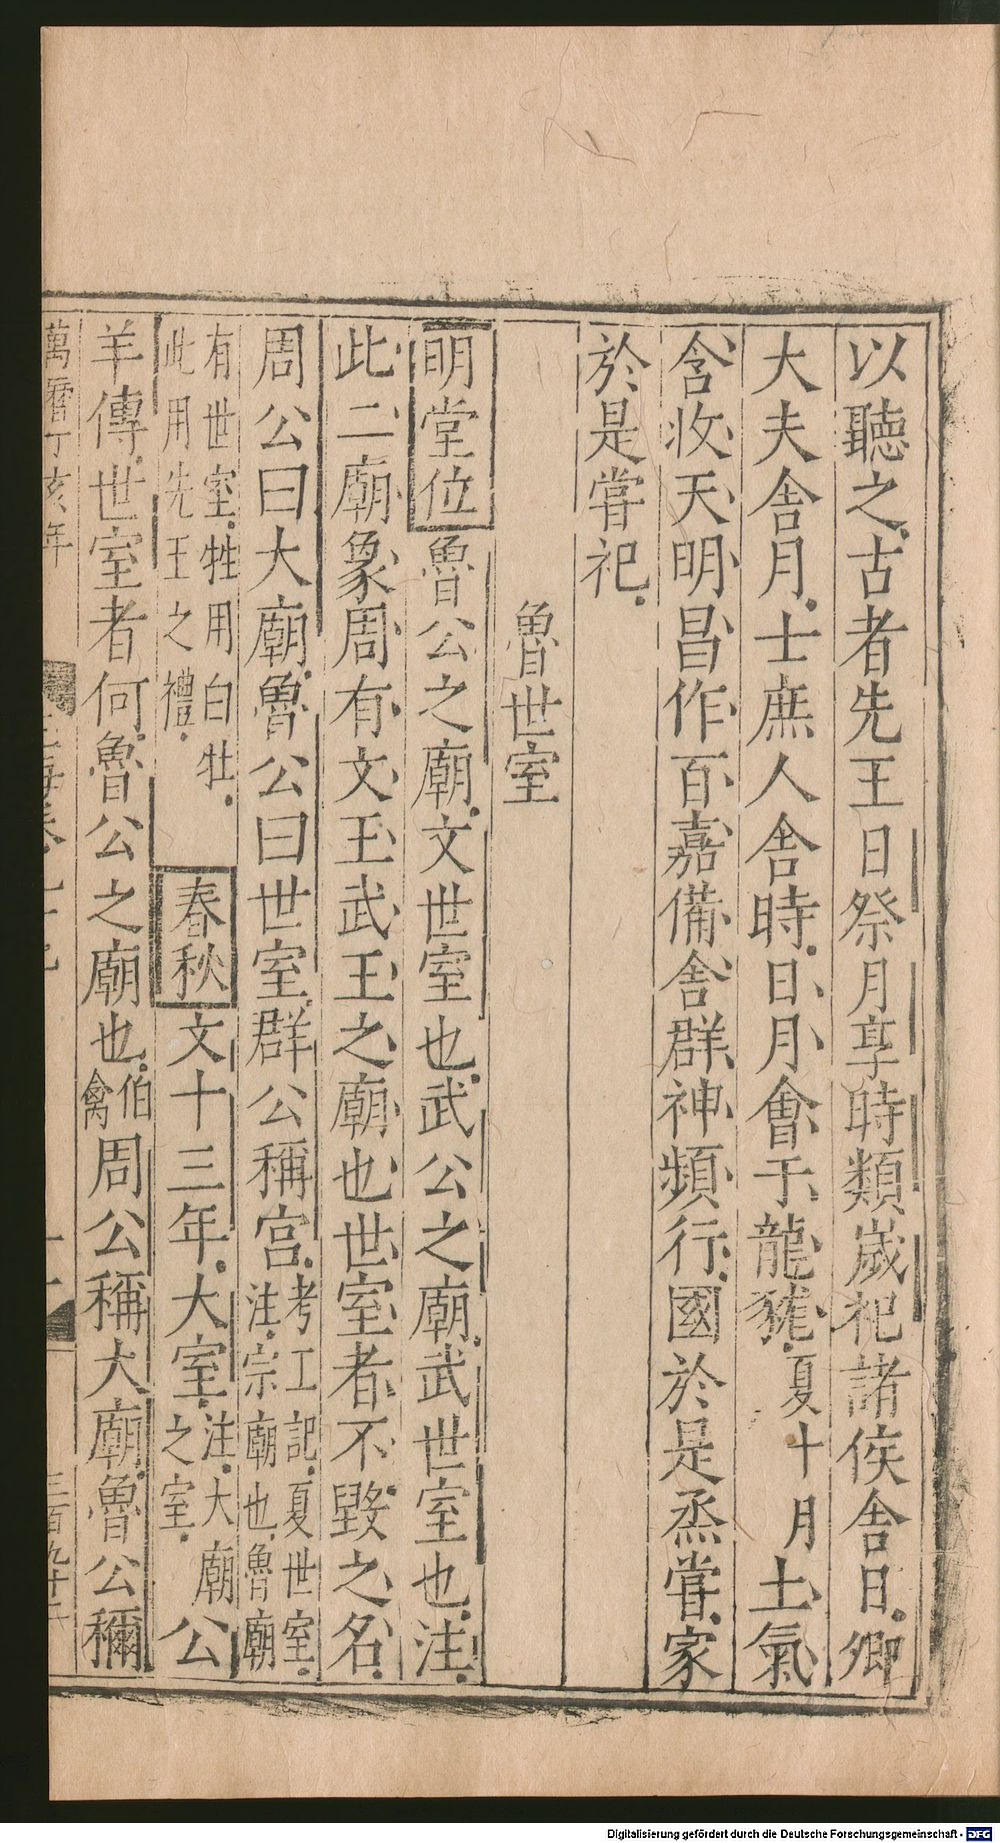 以聽之古者先王日祭月享時類嵗祀諸侯舍日卿
大夫舍月士庶人舍時日月會于龍𧱓夏十月土氣
含收天明昌作百嘉備舍群神頻行國於是烝甞家
於是甞祀
魯世室
明堂位魯公之廟文世室也武公之廟武世室也注
此二廟象周有文王武王之廟也世室者不毀之名
周公曰大廟魯公曰世室群公稱宮考工記夏世室注宗廟也魯廟
有世室牲用白牡此用先王之禮春秋文十三年大室注大廟之室公
羊傳世室者何魯公之廟也伯禽周公稱大廟魯公稱
萬曆丁亥年
Digitalisierung gefördert durch die Deutsche Forschungsgemeinschaft - DFG